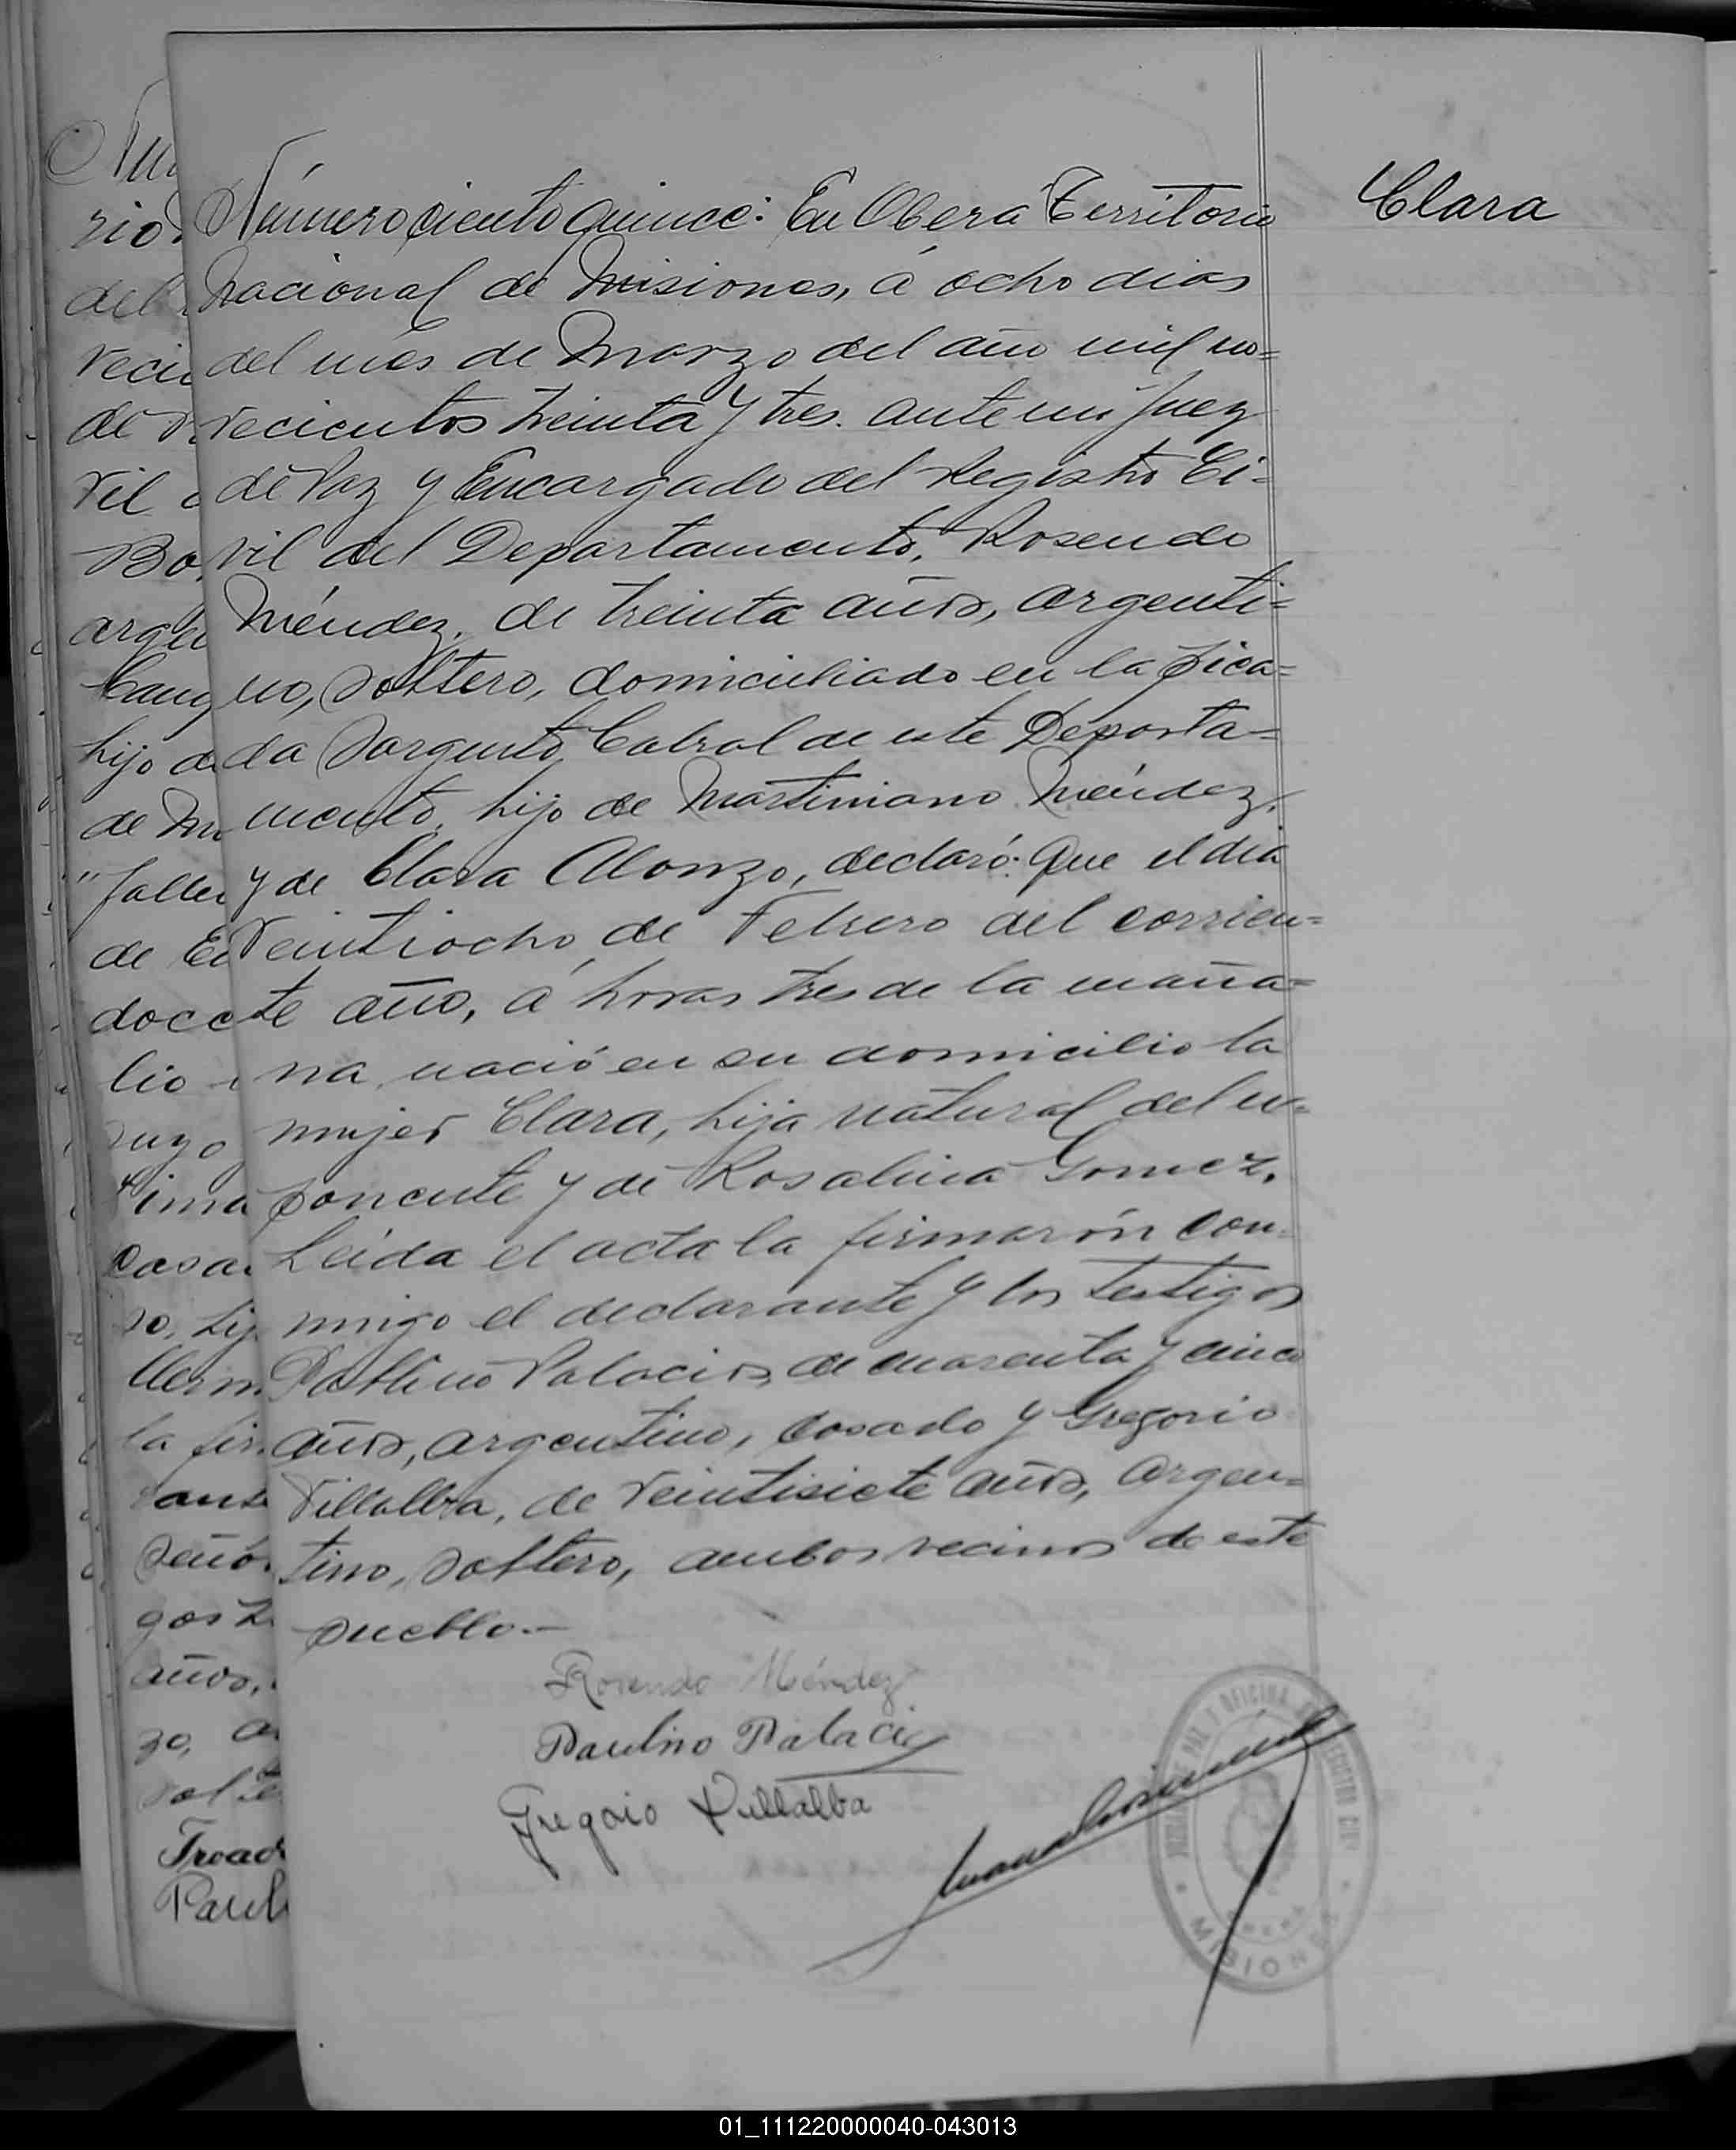 Clara
Número ciento quince: En Oberá Territorio
Nacional de Misiones, á ocho dias
del més de Marzo del año mil no=
vecientos treinta y tres. ante mi Juez
de Paz y Encargado del Registro Ci=
vil del Departamento, Rosendo
Méndez, de treinta años, argenti=
no, soltero, domiciliado en la pica=
da Sargento Cabral de este Departa=
mento, hijo de Martiniano Méndez,
y de Clara Alonzo, declaró: Que el dia
Veintiocho de Febrero del corrien=
te año, á horas tres de la maña=
na, nació en su domicilio la
mujer Clara, hija natural del ex=
ponente y de Rosalina Gomez.
Leida el acta la firmarón con
migo el declarante y los testigos
Paulino Palacios de cuarenta y cinco
años, argentino, casado y Gregorio
Villalba, de veintisiete años, argen=
tino, soltero, ambos vecinos de este
pueblo.-
Rosendo Méndez
Paulino Palacio
Gregorio Villalba
MISIONES
01_111220000040-043013